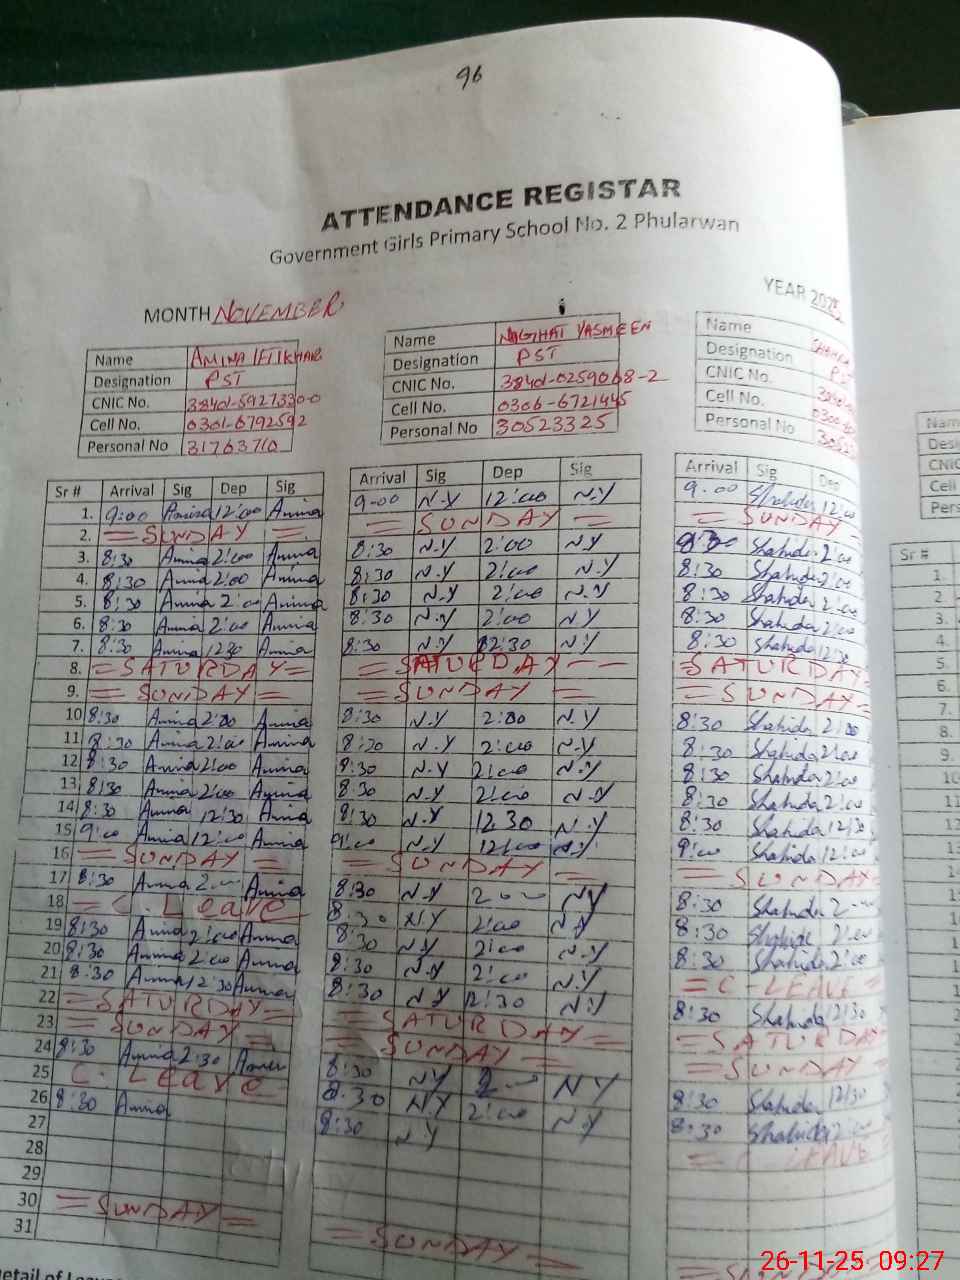 96
ATTENDANCE REGISTAR
Government Girls Primary School No. 2 Phularwan
MONTH NOVEMBER YEAR 2025
Name AMINA IFTIKHAR Name NAGHAT YASMEEN Name
Designation PST Designation PST Designation
CNIC No. CNIC No. CNIC No.
Cell No. 0301-6792592 Cell No. 0306-6721445 Cell No.
Personal No 31763710 Personal No 30523325 Personal No
Sr # Arrival Sig Dep Sig Arrival Sig Dep Sig Arrival Sig Dep
1. 9:00 Amina 12:00 Amina 9-00 N.Y 12:00 N.Y 9.00 Shahida 12:00
2. = SUNDAY = = SUNDAY = = SUNDAY
3. 8:30 Amina 2:00 Amina 8:30 N.Y 2:00 N.Y Shahida 2:00
4. 8:30 Amina 2:00 Amina 8:30 N.Y 2:00 N.Y 8:30 Shahida 2:00
5. 8:30 Amina 2:00 Amina 8:30 N.Y 2:00 N.Y 8:30 Shahida 2:00
6. 8:30 Amina 2:00 Amina 8:30 N.Y 2:00 N.Y 8:30 Shahida 2:00
7. 8:30 Amina 1230 Amina 8:30 N.Y 12:30 N.Y 8:30 Shahida 12:30
8. = SATURDAY = = SATURDAY -- = SATURDAY
9. = SUNDAY = = SUNDAY = = SUNDAY
10 8:30 Amina 2:00 Amina 8:30 N.Y 2:00 N.Y 8:30 Shahida 2:00
11 8:30 Amina 2:00 Amina 8:30 N.Y 2:00 N.Y 8:30 Shahida 2:00
12 8:30 Amina 2:00 Amina 8:30 N.Y 2:00 N.Y 8:30 Shahida 2:00
13 8:30 Amina 2:00 Amina 8:30 N.Y 2:00 N.Y 8:30 Shahida 2:00
14 8:30 Amina 12:30 Amina 8:30 N.Y 12.30 N.Y 8:30 Shahida 12:30
15 9:00 Amina 12:00 Amina 9:00 N.Y 12:00 N.Y 9:00 Shahida 12:00
16 = SUNDAY = = SUNDAY = = SUNDAY
17 8:30 Amina 2- Amina 8:30 N.Y 2-- NY 8:30 Shahida 2--
18 = C. Leave 8:30 NY 2:00 N.Y 8:30 2:00
19 8:30 Amina 2:00 Amina 8:30 N.Y 2:00 N.Y 8:30 Shahida 2:00
20 8:30 Amina 2:00 Amina 8:30 N.Y 2:00 N.Y = C-LEAVE =
21 8:30 Amina 12:30 Amina 8:30 N.Y 12:30 N.Y 8:30 Shahida 12:30
22 = SATURDAY = = SATURDAY = = SATURDAY
23 = SUNDAY = = SUNDAY = = SUNDAY
24 8:30 Amina 2:30 Amina 8:30 NY 2- NY 8:30 Shahida 12:30
25 C. Leave 8.30 N.Y 2:00 N.Y 8:30 Shahida 2:00
26 8:30 Amina 8:30 N.Y = LEAVE =
27
28
29
30 = SUNDAY = = SUNDAY =
31
Sr #
1.
2
3.
4.
5.
6.
7.
8.
9.
26-11-25 09:27